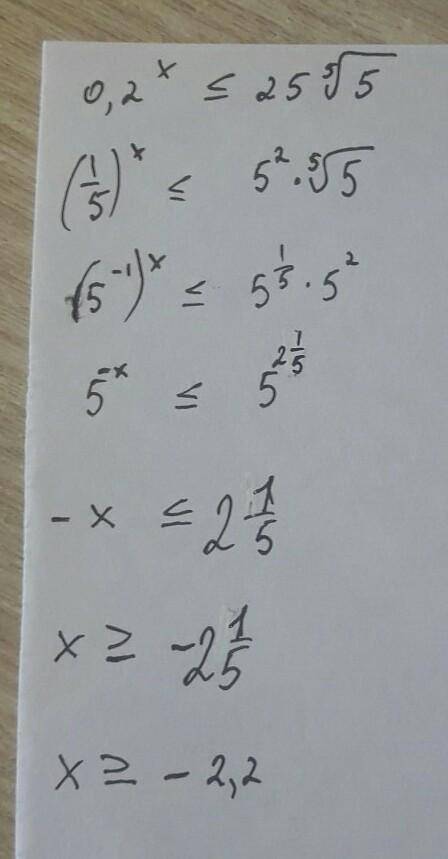 0,2^x ≤ 25 ⁵√5
(1/5)^x ≤ 5² · ⁵√5
(5⁻¹)^x ≤ 5^(1/5) · 5²
5^(-x) ≤ 5^(2 1/5)
- x ≤ 2 1/5
x ≥ -2 1/5
x ≥ - 2,2